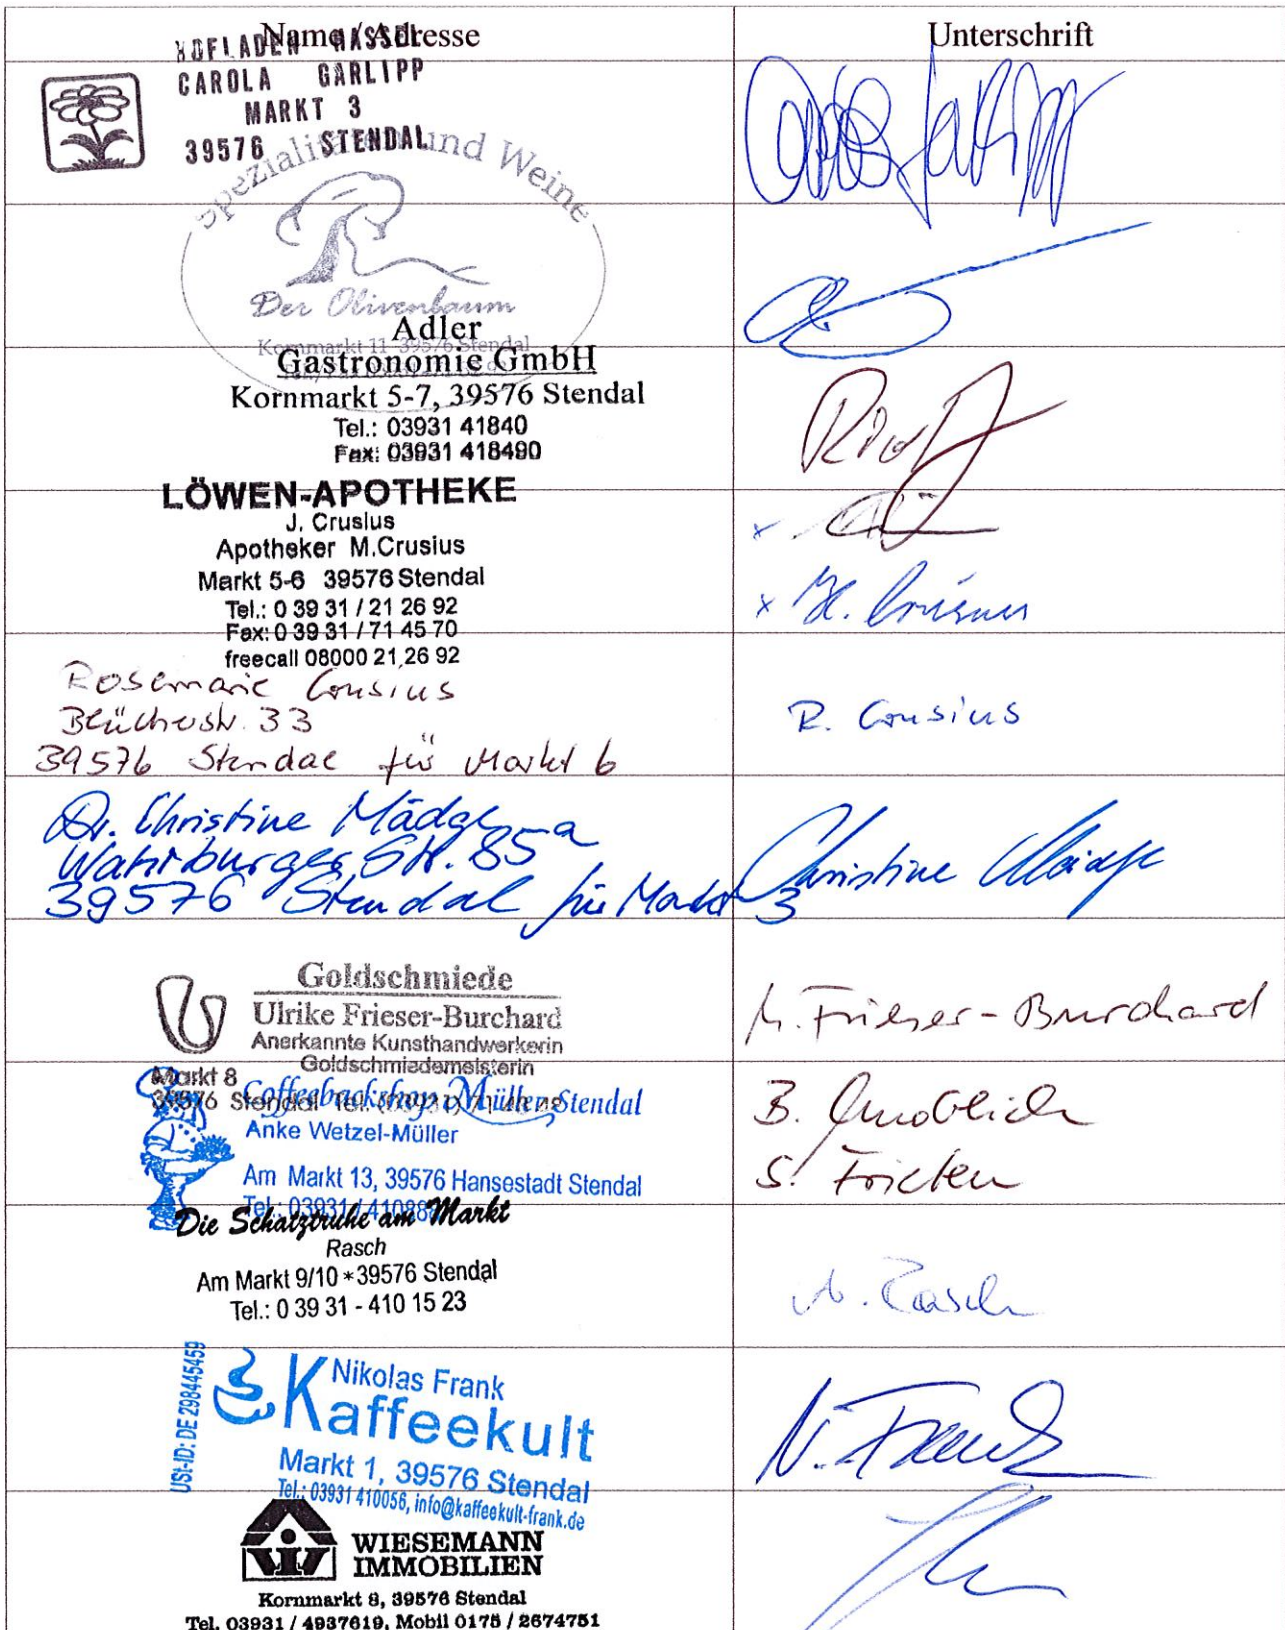 Name / Adresse
Unterschrift
HOFLADEN HASSEL
CAROLA GARLIPP
MARKT 3
39576 STENDAL
Spezialitäten und Weine
Der Olivenbaum
Kornmarkt 11 39576 Stendal
Adler
Gastronomie GmbH
Kornmarkt 5-7, 39576 Stendal
Tel.: 03931 41840
Fax: 03931 418490
LÖWEN-APOTHEKE
J. Crusius
Apotheker M.Crusius
Markt 5-6 39576 Stendal
Tel.: 0 39 31 / 21 26 92
Fax: 0 39 31 / 71 45 70
freecall 08000 21 26 92
Rosemarie Crusius
Blücherstr. 33
39576 Stendal für Markt 6
R. Crusius
Dr. Christine Mädge
Wahrburger Str. 85a
39576 Stendal für Markt 3
Christine Mädge
Goldschmiede
Ulrike Frieser-Burchard
Anerkannte Kunsthandwerkerin
Goldschmiedemeisterin
Markt 8
39576 Stendal Tel. (03931)
U. Frieser-Burchard
Coffeebackshop Müller Stendal
Anke Wetzel-Müller
Am Markt 13, 39576 Hansestadt Stendal
Tel.: 03931 / 41088
B.
S. Fricken
Die Schatztruhe am Markt
Rasch
Am Markt 9/10 * 39576 Stendal
Tel.: 0 39 31 - 410 15 23
Rasch
USt-ID: DE 298445459
Nikolas Frank
Kaffeekult
Markt 1, 39576 Stendal
Tel.: 03931 410056, info@kaffeekult-frank.de
N. Frank
WIESEMANN
IMMOBILIEN
Kornmarkt 8, 39576 Stendal
Tel. 03931 / 4937619, Mobil 0175 / 2674751